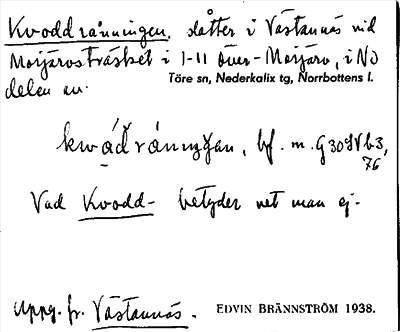 Kvoddrånningen, slåtter i Västannäs vid
Morjärvsträsket i 1-11 Över-Morjärv, i NO
delen av.
Töre sn, Nederkalix tg, Norrbottens l.
bf. m.
Vad Kvodd- betyder vet man ej.
Uppg. fr. Västannäs.
EDVIN BRÄNNSTRÖM 1938.